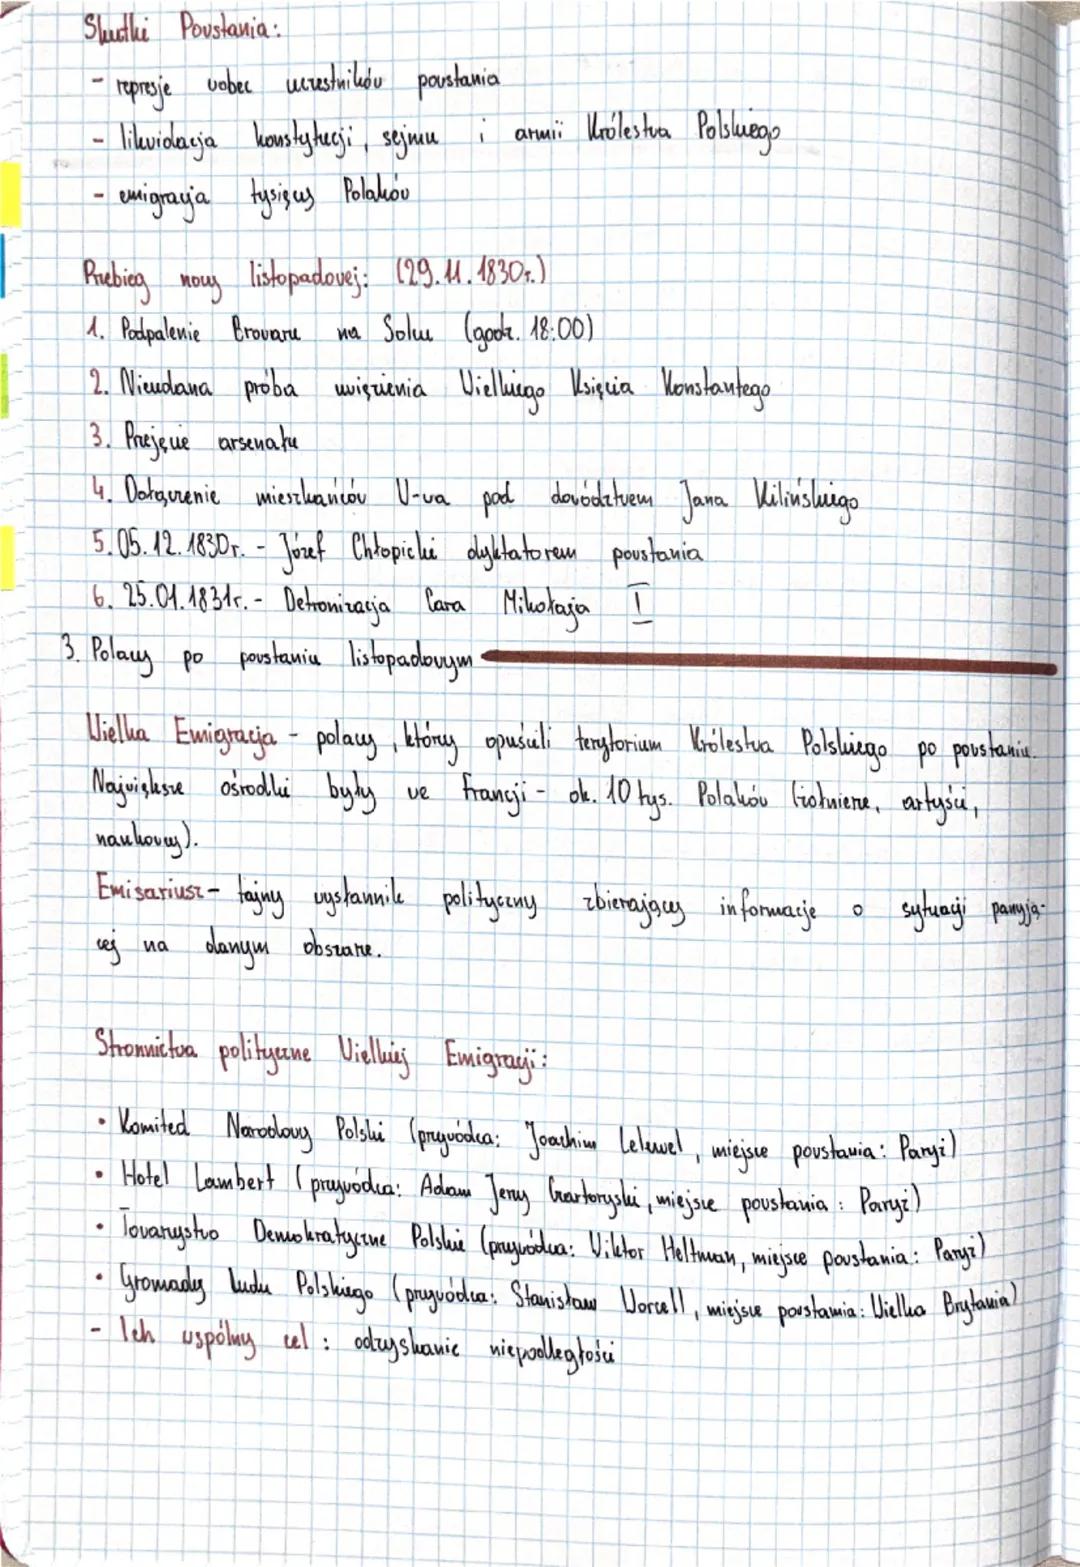 Skutki Powstania:
- represje wobec uczestników powstania
- likwidacja konstytucji, sejmu i armii Królestwa Polskiego
- emigracja tysięcy Polaków
Przebieg nocy listopadowej: (29.11.1830r.)
1. Podpalenie Browaru na Solcu (godz. 18:00)
2. Nieudana próba uwięzienia Wielkiego Księcia Konstantego
3. Przejęcie arsenału
4. Dołączenie mieszkańców W-wa pod dowództwem Jana Kilińskiego
5. 05.12.1830r. - Józef Chłopicki dyktatorem powstania
6. 25.01.1831r. - Detronizacja Cara Mikołaja I
3. Polacy po powstaniu listopadowym
Wielka Emigracja - polacy, którzy opuścili terytorium Królestwa Polskiego po powstaniu.
Największe ośrodki były we Francji - ok. 10 tys. Polaków (żołnierze, artyści,
naukowcy).
Emisariusz - tajny wysłannik polityczny zbierający informacje o sytuacji panują-
cej na danym obszarze.
Stronnictwa polityczne Wielkiej Emigracji:
• Komited Narodowy Polski (przywódca: Joachim Lelewel, miejsce powstania: Paryż)
• Hotel Lambert (przywódca: Adam Jerzy Czartoryski, miejsce powstania: Paryż)
• Towarzystwo Demokratyczne Polskie (przywódca: Wiktor Heltman, miejsce powstania: Paryż)
• Gromady Ludu Polskiego (przywódca: Stanisław Worcell, miejsce powstania: Wielka Brytania)
- Ich wspólny cel: odzyskanie niepodległości